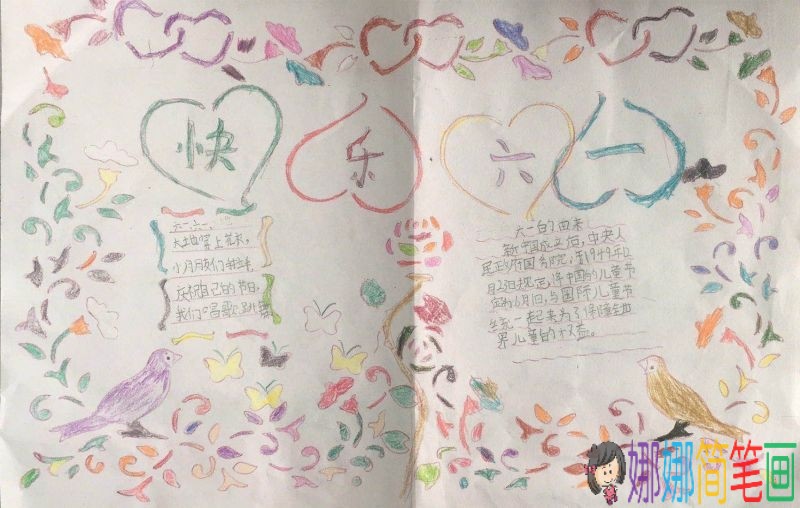 快乐六一
六一六一,
大地穿上花衣,
小朋友们
庆祝自己的节日,
我们唱歌跳舞
六一的由来
新中国成立后,中央人
民政府国务院,于1949年12
月23日规定,将中国的儿童节
定为6月1日,与国际儿童节
统一起来为了保障全世
界儿童的权益。
娜娜简笔画